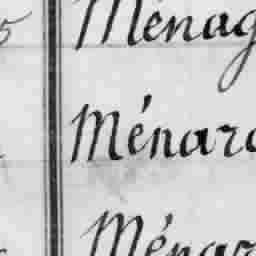 5 Ménag
Ménard
Ménar